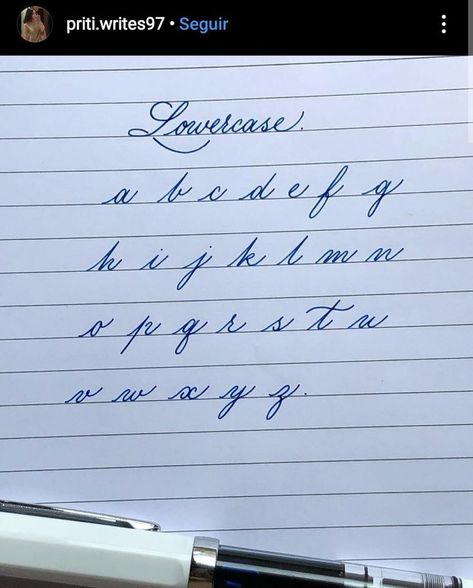 priti.writes97 • Seguir
Lowercase.
a b c d e f g
h i j k l m n
o p q r s t u
v w x y z.